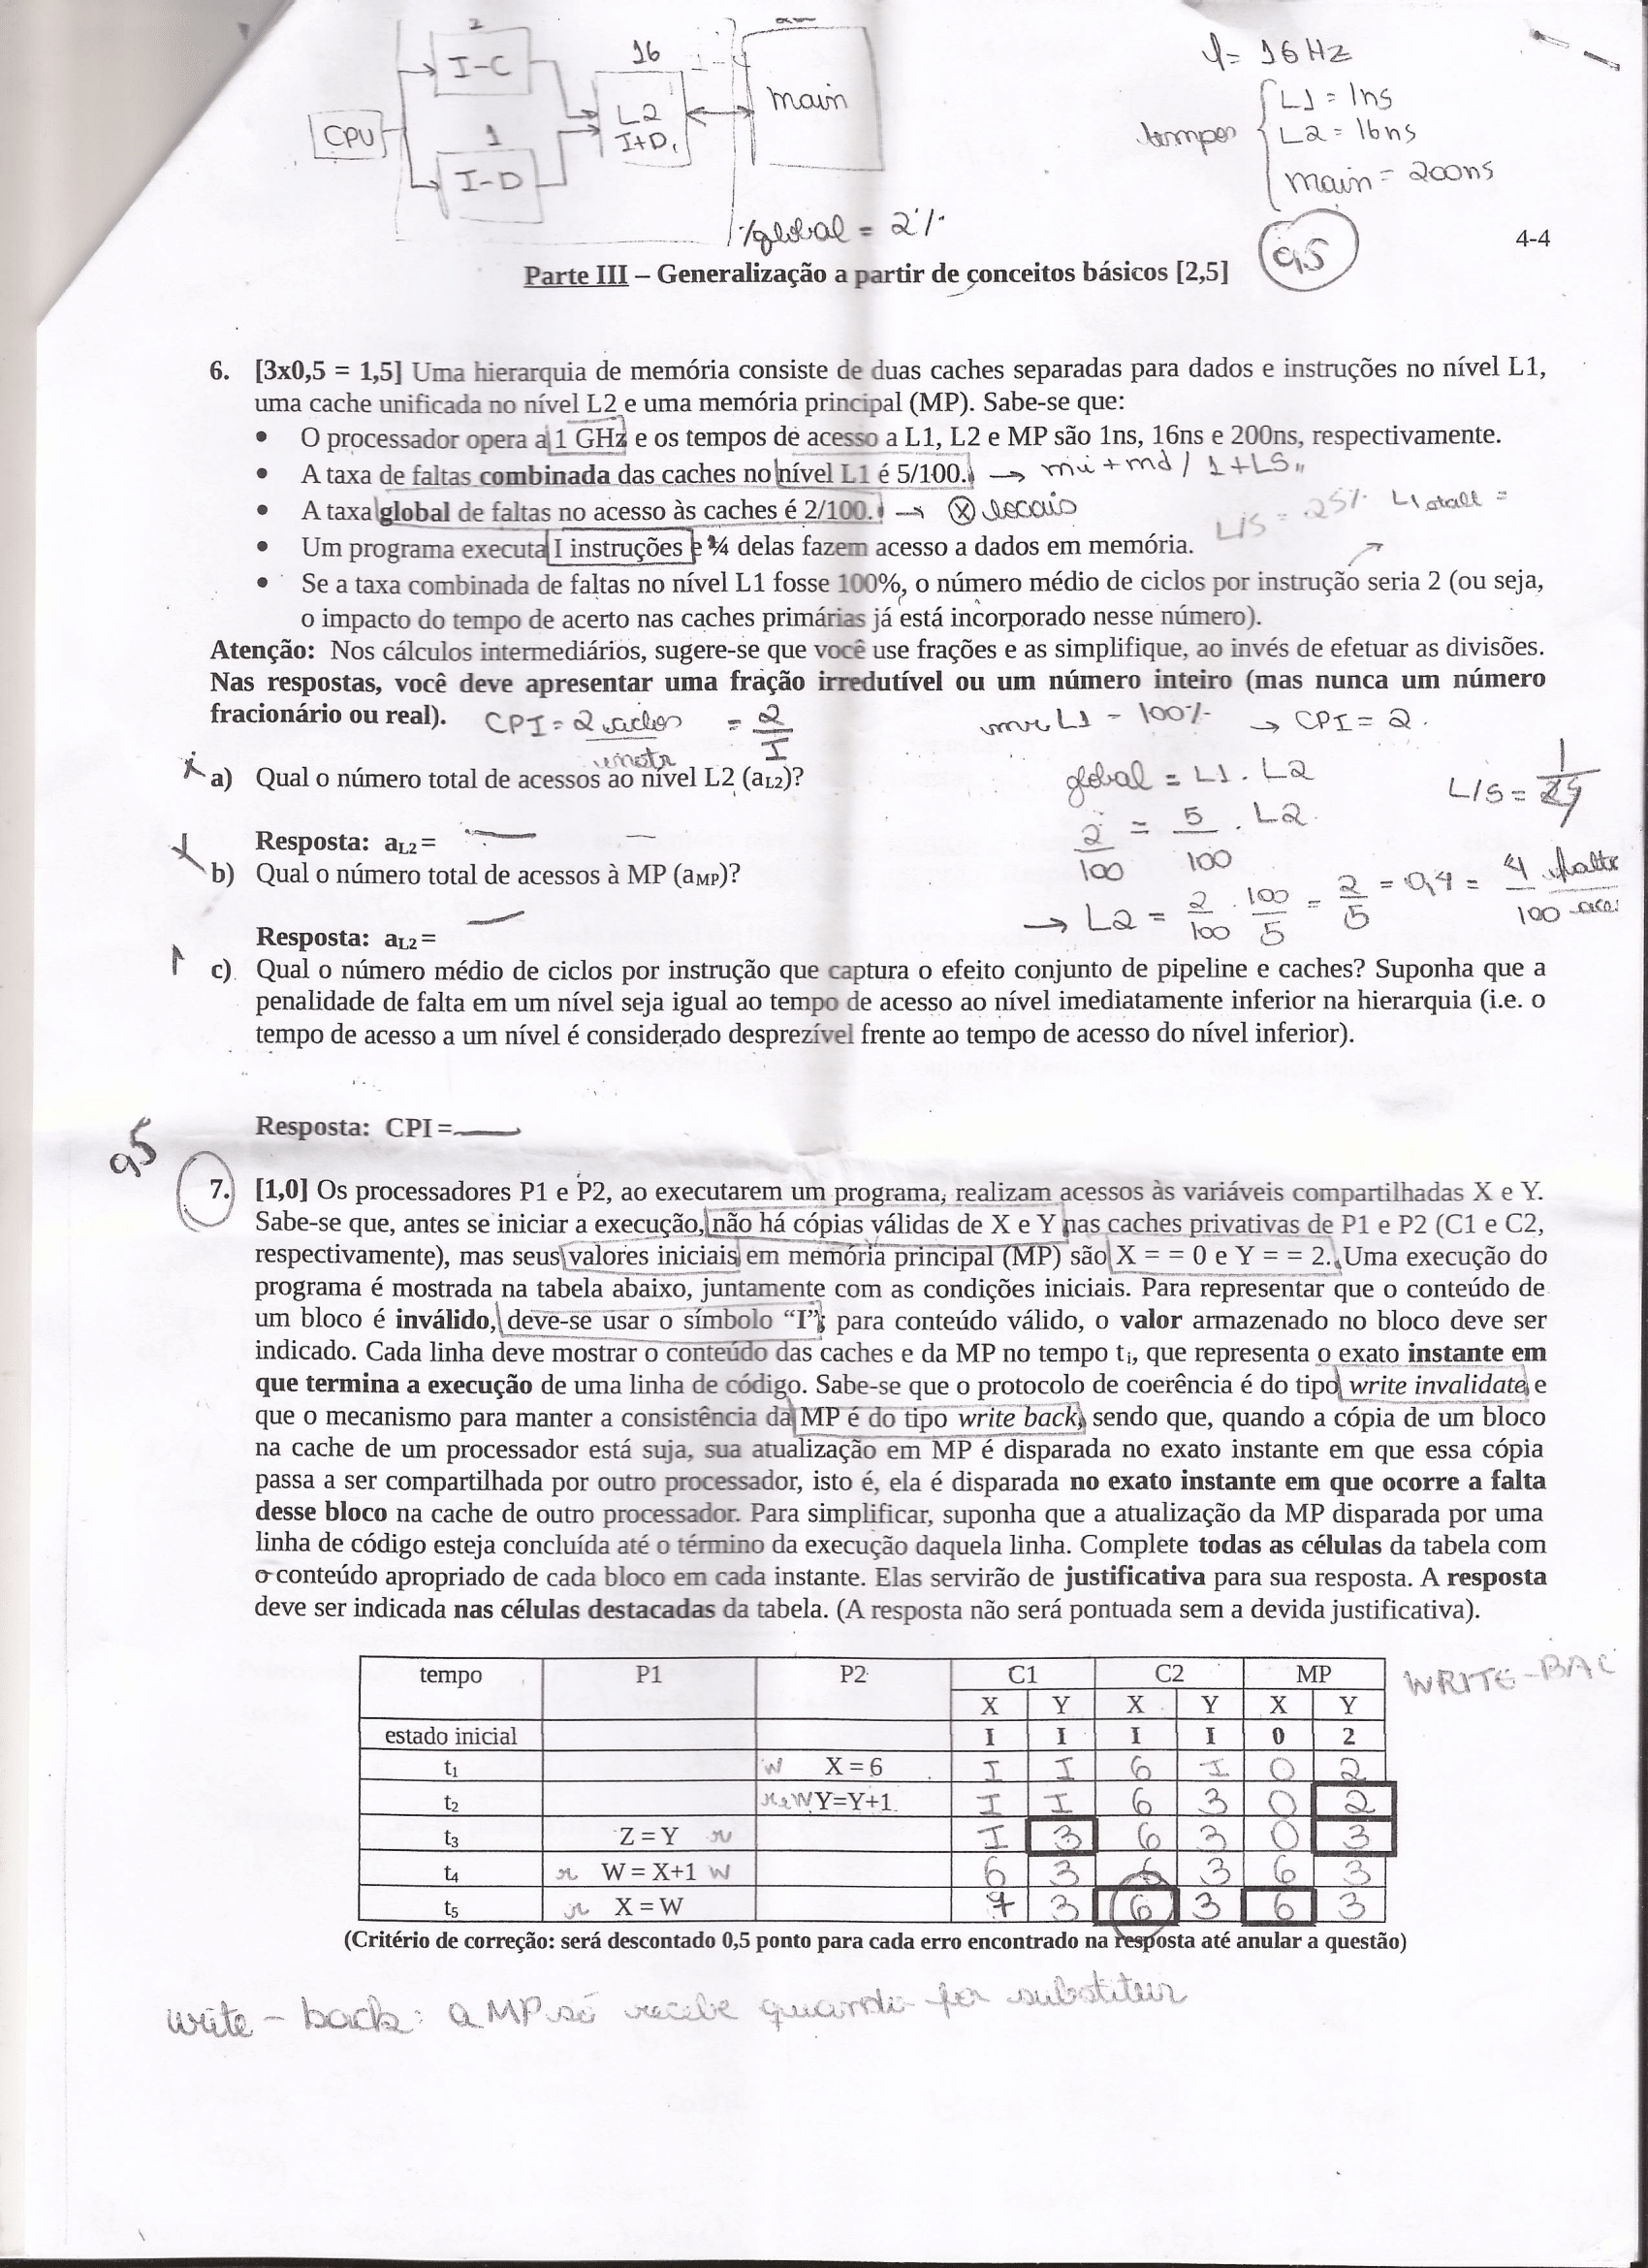 2
I-C
16
CPU
L2
I+D
main
1
I-D
f = 1GHz
tempos
L1 = 1ns
L2 = 16ns
main = 200ns
global = 2%
0,5
4-4
Parte III – Generalização a partir de conceitos básicos [2,5]
6. [3x0,5 = 1,5] Uma hierarquia de memória consiste de duas caches separadas para dados e instruções no nível L1,
uma cache unificada no nível L2 e uma memória principal (MP). Sabe-se que:
• O processador opera a 1 GHz e os tempos de acesso a L1, L2 e MP são 1ns, 16ns e 200ns, respectivamente.
• A taxa de faltas combinada das caches no nível L1 é 5/100. → mi + md / 1 + LS
• A taxa global de faltas no acesso às caches é 2/100. → ⊗ locais
L/S = 25% L1 stall =
• Um programa executa I instruções e ¼ delas fazem acesso a dados em memória.
• Se a taxa combinada de faltas no nível L1 fosse 100%, o número médio de ciclos por instrução seria 2 (ou seja,
o impacto do tempo de acerto nas caches primárias já está incorporado nesse número).
Atenção: Nos cálculos intermediários, sugere-se que você use frações e as simplifique, ao invés de efetuar as divisões.
Nas respostas, você deve apresentar uma fração irredutível ou um número inteiro (mas nunca um número
fracionário ou real). CPI = 2 ciclos / instr = 2 / I
mr L1 - 100% → CPI = 2.
a) Qual o número total de acessos ao nível L2 (aL2)?
global = L1 . L2
L/S = 1
2/100 = 5/100 . L2
Resposta: aL2 =
b) Qual o número total de acessos à MP (aMP)?
→ L2 = 2/100 . 100/5 = 2/5 = 0,4 = 4 faltas / 100
Resposta: aL2 =
c) Qual o número médio de ciclos por instrução que captura o efeito conjunto de pipeline e caches? Suponha que a
penalidade de falta em um nível seja igual ao tempo de acesso ao nível imediatamente inferior na hierarquia (i.e. o
tempo de acesso a um nível é considerado desprezível frente ao tempo de acesso do nível inferior).
Resposta: CPI =
0,5
7. [1,0] Os processadores P1 e P2, ao executarem um programa, realizam acessos às variáveis compartilhadas X e Y.
Sabe-se que, antes se iniciar a execução, não há cópias válidas de X e Y nas caches privativas de P1 e P2 (C1 e C2,
respectivamente), mas seus valores iniciais em memória principal (MP) são X = = 0 e Y = = 2. Uma execução do
programa é mostrada na tabela abaixo, juntamente com as condições iniciais. Para representar que o conteúdo de
um bloco é inválido, deve-se usar o símbolo “I”; para conteúdo válido, o valor armazenado no bloco deve ser
indicado. Cada linha deve mostrar o conteúdo das caches e da MP no tempo ti, que representa o exato instante em
que termina a execução de uma linha de código. Sabe-se que o protocolo de coerência é do tipo write invalidate, e
que o mecanismo para manter a consistência da MP é do tipo write back, sendo que, quando a cópia de um bloco
na cache de um processador está suja, sua atualização em MP é disparada no exato instante em que essa cópia
passa a ser compartilhada por outro processador, isto é, ela é disparada no exato instante em que ocorre a falta
desse bloco na cache de outro processador. Para simplificar, suponha que a atualização da MP disparada por uma
linha de código esteja concluída até o término da execução daquela linha. Complete todas as células da tabela com
o conteúdo apropriado de cada bloco em cada instante. Elas servirão de justificativa para sua resposta. A resposta
deve ser indicada nas células destacadas da tabela. (A resposta não será pontuada sem a devida justificativa).
tempo P1 P2 C1 C2 MP WRITE-BAC
X Y X Y X Y
estado inicial I I I I 0 2
t1 W X = 6 I I 6 I 0 2
t2 W Y=Y+1 I I 6 3 0 2
t3 Z = Y r I 3 6 3 0 3
t4 r W = X+1 W 6 3 6 3 6 3
t5 r X = W 7 3 6 3 6 3
(Critério de correção: será descontado 0,5 ponto para cada erro encontrado na resposta até anular a questão)
write - back: a MP só recebe quando for substituir